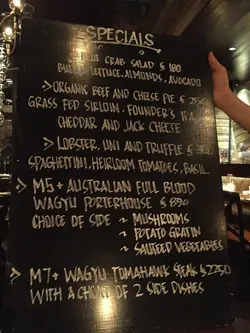 SPECIALS
BLUE CRAB SALAD $ 180
LETTUCE, ALMONDS, AVOCADO
> ORGANIC BEEF AND CHEESE PIE $
GRASS FED SIRLOIN. FOUNDER'S
CHEDDAR AND JACK CHEESE
> LOBSTER, UNI AND TRUFFLE $
SPAGHETTINI, HEIRLOOM TOMATOES, BASIL
> M5+ AUSTRALIAN FULL BLOOD
WAGYU PORTERHOUSE $ 890
CHOICE OF SIDE ~ MUSHROOMS
~ POTATO GRATIN
~ SAUTEED VEGETABLES
> M7+ WAGYU TOMAHAWK STEAK $ 2250
WITH A CHOICE OF 2 SIDE DISHES